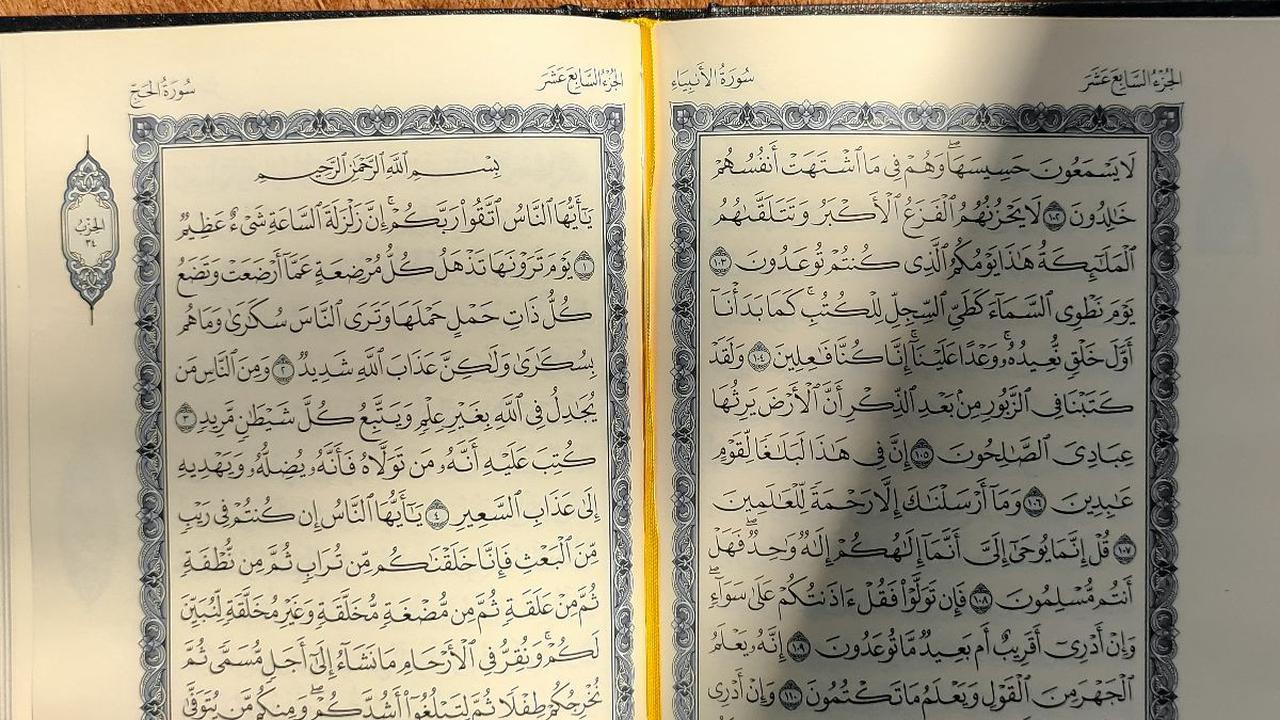 الجُزْءُ السَّابِعَ عَشَرَ
سُورَةُ الأَنبِيَاءِ
لَا يَسْمَعُونَ حَسِيسَهَاۖ وَهُمْ فِى مَا ٱشْتَهَتْ أَنفُسُهُمْ
خَٰلِدُونَ ١٠٢ لَا يَحْزُنُهُمُ ٱلْفَزَعُ ٱلْأَكْبَرُ وَتَتَلَقَّىٰهُمُ
ٱلْمَلَٰٓئِكَةُ هَٰذَا يَوْمُكُمُ ٱلَّذِى كُنتُمْ تُوعَدُونَ ١٠٣
يَوْمَ نَطْوِى ٱلسَّمَآءَ كَطَىِّ ٱلسِّجِلِّ لِلْكُتُبِۚ كَمَا بَدَأْنَآ
أَوَّلَ خَلْقٍ نُّعِيدُهُۥۚ وَعْدًا عَلَيْنَآۚ إِنَّا كُنَّا فَٰعِلِينَ ١٠٤ وَلَقَدْ
كَتَبْنَا فِى ٱلزَّبُورِ مِنۢ بَعْدِ ٱلذِّكْرِ أَنَّ ٱلْأَرْضَ يَرِثُهَا
عِبَادِىَ ٱلصَّٰلِحُونَ ١٠٥ إِنَّ فِى هَٰذَا لَبَلَٰغًا لِّقَوْمٍ
عَٰبِدِينَ ١٠٦ وَمَآ أَرْسَلْنَٰكَ إِلَّا رَحْمَةً لِّلْعَٰلَمِينَ
١٠٧ قُلْ إِنَّمَا يُوحَىٰٓ إِلَىَّ أَنَّمَآ إِلَٰهُكُمْ إِلَٰهٌ وَٰحِدٌۖ فَهَلْ
أَنتُم مُّسْلِمُونَ ١٠٨ فَإِن تَوَلَّوْا۟ فَقُلْ ءَاذَنتُكُمْ عَلَىٰ سَوَآءٍۖ
وَإِنْ أَدْرِىٓ أَقَرِيبٌ أَم بَعِيدٌ مَّا تُوعَدُونَ ١٠٩ إِنَّهُۥ يَعْلَمُ
ٱلْجَهْرَ مِنَ ٱلْقَوْلِ وَيَعْلَمُ مَا تَكْتُمُونَ ١١٠ وَإِنْ أَدْرِى
الجُزْءُ السَّابِعَ عَشَرَ
سُورَةُ الحَجِّ
الحِزْبُ
٣٤
بِسْمِ ٱللَّهِ ٱلرَّحْمَٰنِ ٱلرَّحِيمِ
يَٰٓأَيُّهَا ٱلنَّاسُ ٱتَّقُوا۟ رَبَّكُمْۚ إِنَّ زَلْزَلَةَ ٱلسَّاعَةِ شَىْءٌ عَظِيمٌ
١ يَوْمَ تَرَوْنَهَا تَذْهَلُ كُلُّ مُرْضِعَةٍ عَمَّآ أَرْضَعَتْ وَتَضَعُ
كُلُّ ذَاتِ حَمْلٍ حَمْلَهَا وَتَرَى ٱلنَّاسَ سُكَٰرَىٰ وَمَا هُم
بِسُكَٰرَىٰ وَلَٰكِنَّ عَذَابَ ٱللَّهِ شَدِيدٌ ٢ وَمِنَ ٱلنَّاسِ مَن
يُجَٰدِلُ فِى ٱللَّهِ بِغَيْرِ عِلْمٍ وَيَتَّبِعُ كُلَّ شَيْطَٰنٍ مَّرِيدٍ ٣
كُتِبَ عَلَيْهِ أَنَّهُۥ مَن تَوَلَّاهُ فَأَنَّهُۥ يُضِلُّهُۥ وَيَهْدِيهِ
إِلَىٰ عَذَابِ ٱلسَّعِيرِ ٤ يَٰٓأَيُّهَا ٱلنَّاسُ إِن كُنتُمْ فِى رَيْبٍ
مِّنَ ٱلْبَعْثِ فَإِنَّا خَلَقْنَٰكُم مِّن تُرَابٍ ثُمَّ مِن نُّطْفَةٍ
ثُمَّ مِنْ عَلَقَةٍ ثُمَّ مِن مُّضْغَةٍ مُّخَلَّقَةٍ وَغَيْرِ مُخَلَّقَةٍ لِّنُبَيِّنَ
لَكُمْۚ وَنُقِرُّ فِى ٱلْأَرْحَامِ مَا نَشَآءُ إِلَىٰٓ أَجَلٍ مُّسَمًّى ثُمَّ
نُخْرِجُكُمْ طِفْلًا ثُمَّ لِتَبْلُغُوٓا۟ أَشُدَّكُمْۖ وَمِنكُم مَّن يُتَوَفَّىٰ